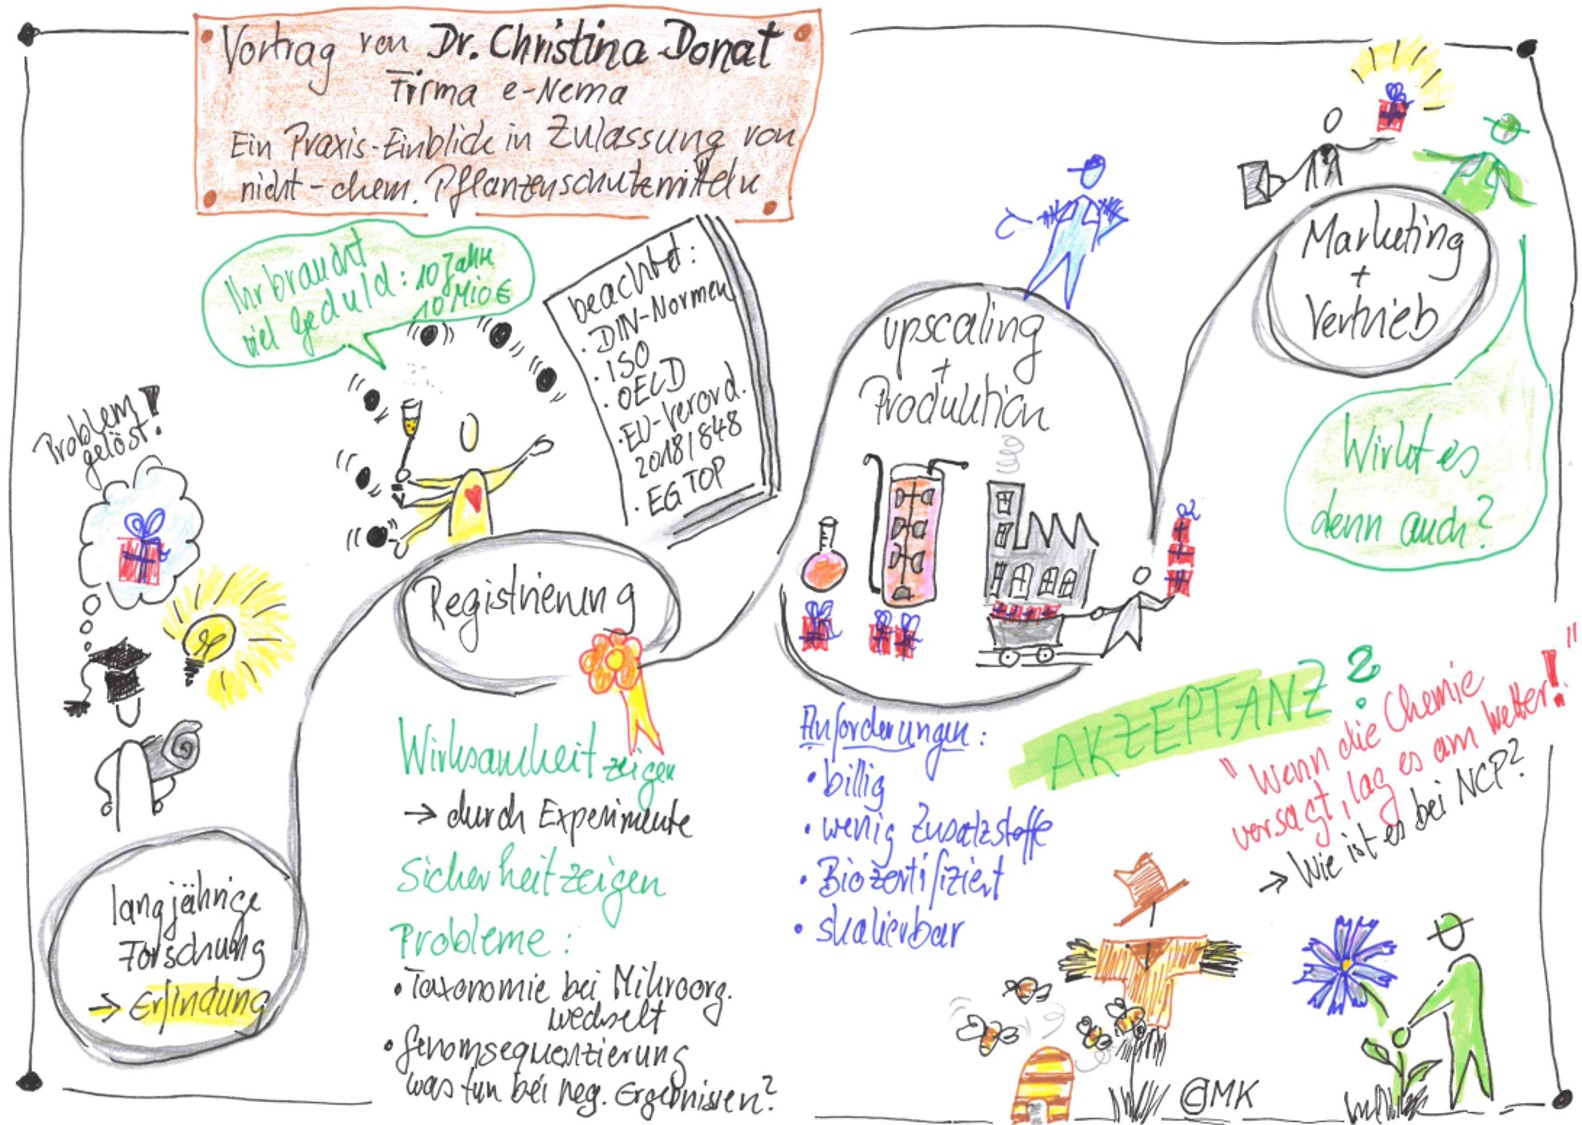 Vortrag von Dr. Christina Donat
Firma e-Nema
Ein Praxis-Einblick in Zulassung von
nicht-chem. Pflanzenschutzmitteln
Ihr braucht
viel Geduld: 10 Jahre
10 Mio €
beachtet:
· DIN-Normen
· ISO
· OECD
· EU-Verord.
2018/848
· EGTOP
Problem
gelöst!
langjährige
Forschung
→ Erfindung
Registrierung
Wirksamkeit zeigen
→ durch Experimente
Sicherheit zeigen
Probleme:
· Taxonomie bei Mikroorg.
wechselt
· Genomsequenzierung
was tun bei neg. Ergebnissen?
upscaling
+
Produktion
Anforderungen:
· billig
· wenig Zusatzstoffe
· Biozertifiziert
· skalierbar
Marketing
+
Vertrieb
Wirkt es
denn auch?
AKZEPTANZ?
"Wenn die Chemie
versagt, lag es am Wetter!"
→ Wie ist es bei NCP?
©MK